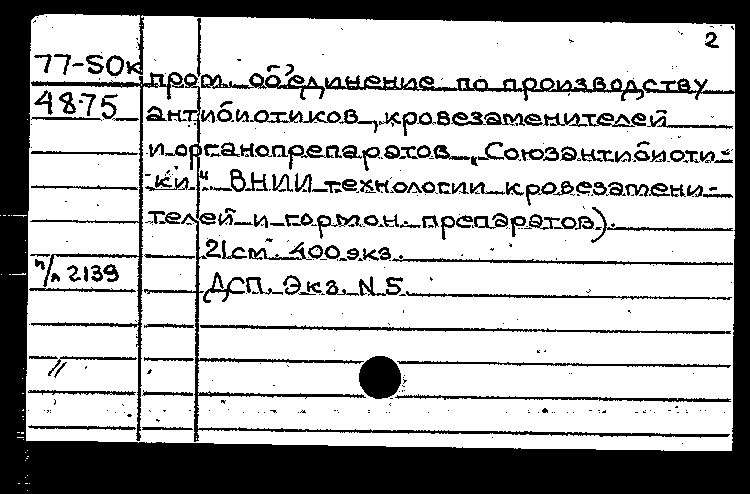 2
77-50к пром. объединение по производству
4875 антибиотиков, кровезаменителей
и органопрепаратов „Союзантибиоти-
ки" ВНИИ технологии кровезамени-
телей и гормон. препаратов).
21см. 400 экз.
п/п 2139 ДСП. Экз. N 5.